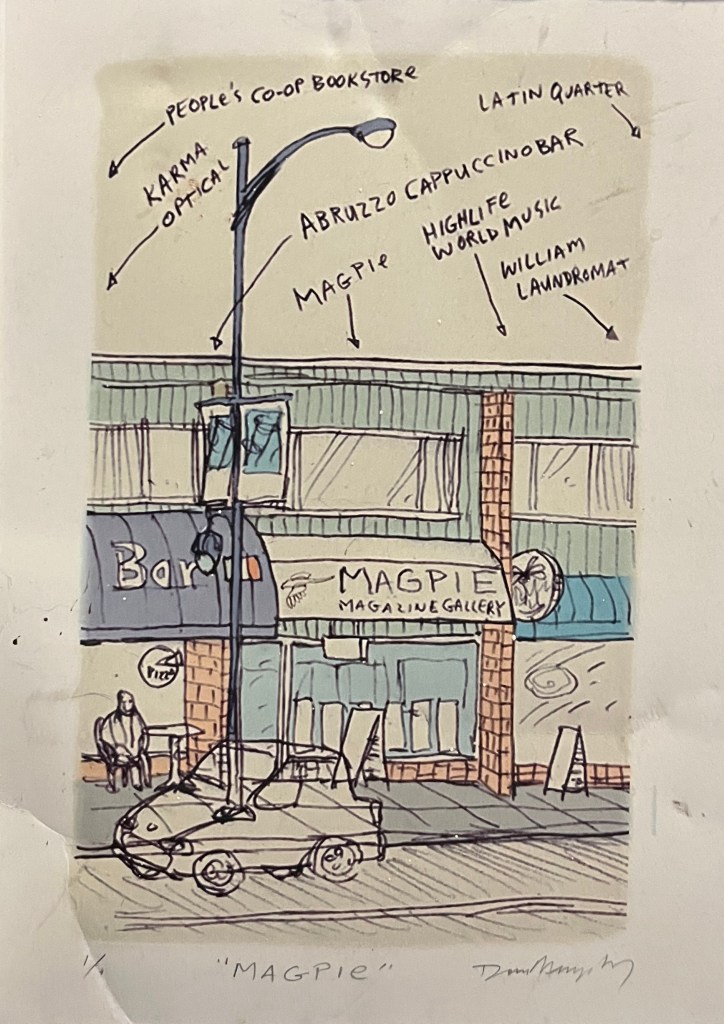 PEOPLE'S CO-OP BOOKSTORE
LATIN QUARTER
KARMA
OPTICAL
ABRUZZO CAPPUCCINO BAR
HIGHLIFE
WORLD MUSIC
MAGPIE
WILLIAM
LAUNDROMAT
Bar
MAGPIE
MAGAZINE GALLERY
PIZZA
1/1
"MAGPIE"